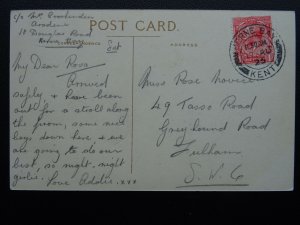 c/o Mrs
10 Douglas Road
Herne Bay
Sat
POST CARD
ADDRESS
HERNE BAY
KENT
My Dear Rosa
Arrived
safely, & have been
out for a stroll along
the front, some nice
boys down here & we
are going to do our
best, so night-night
girlie.
Love Addie. xxx
Miss Rose
49 Tasso Road
Greyhound Road
Fulham
S.W.6